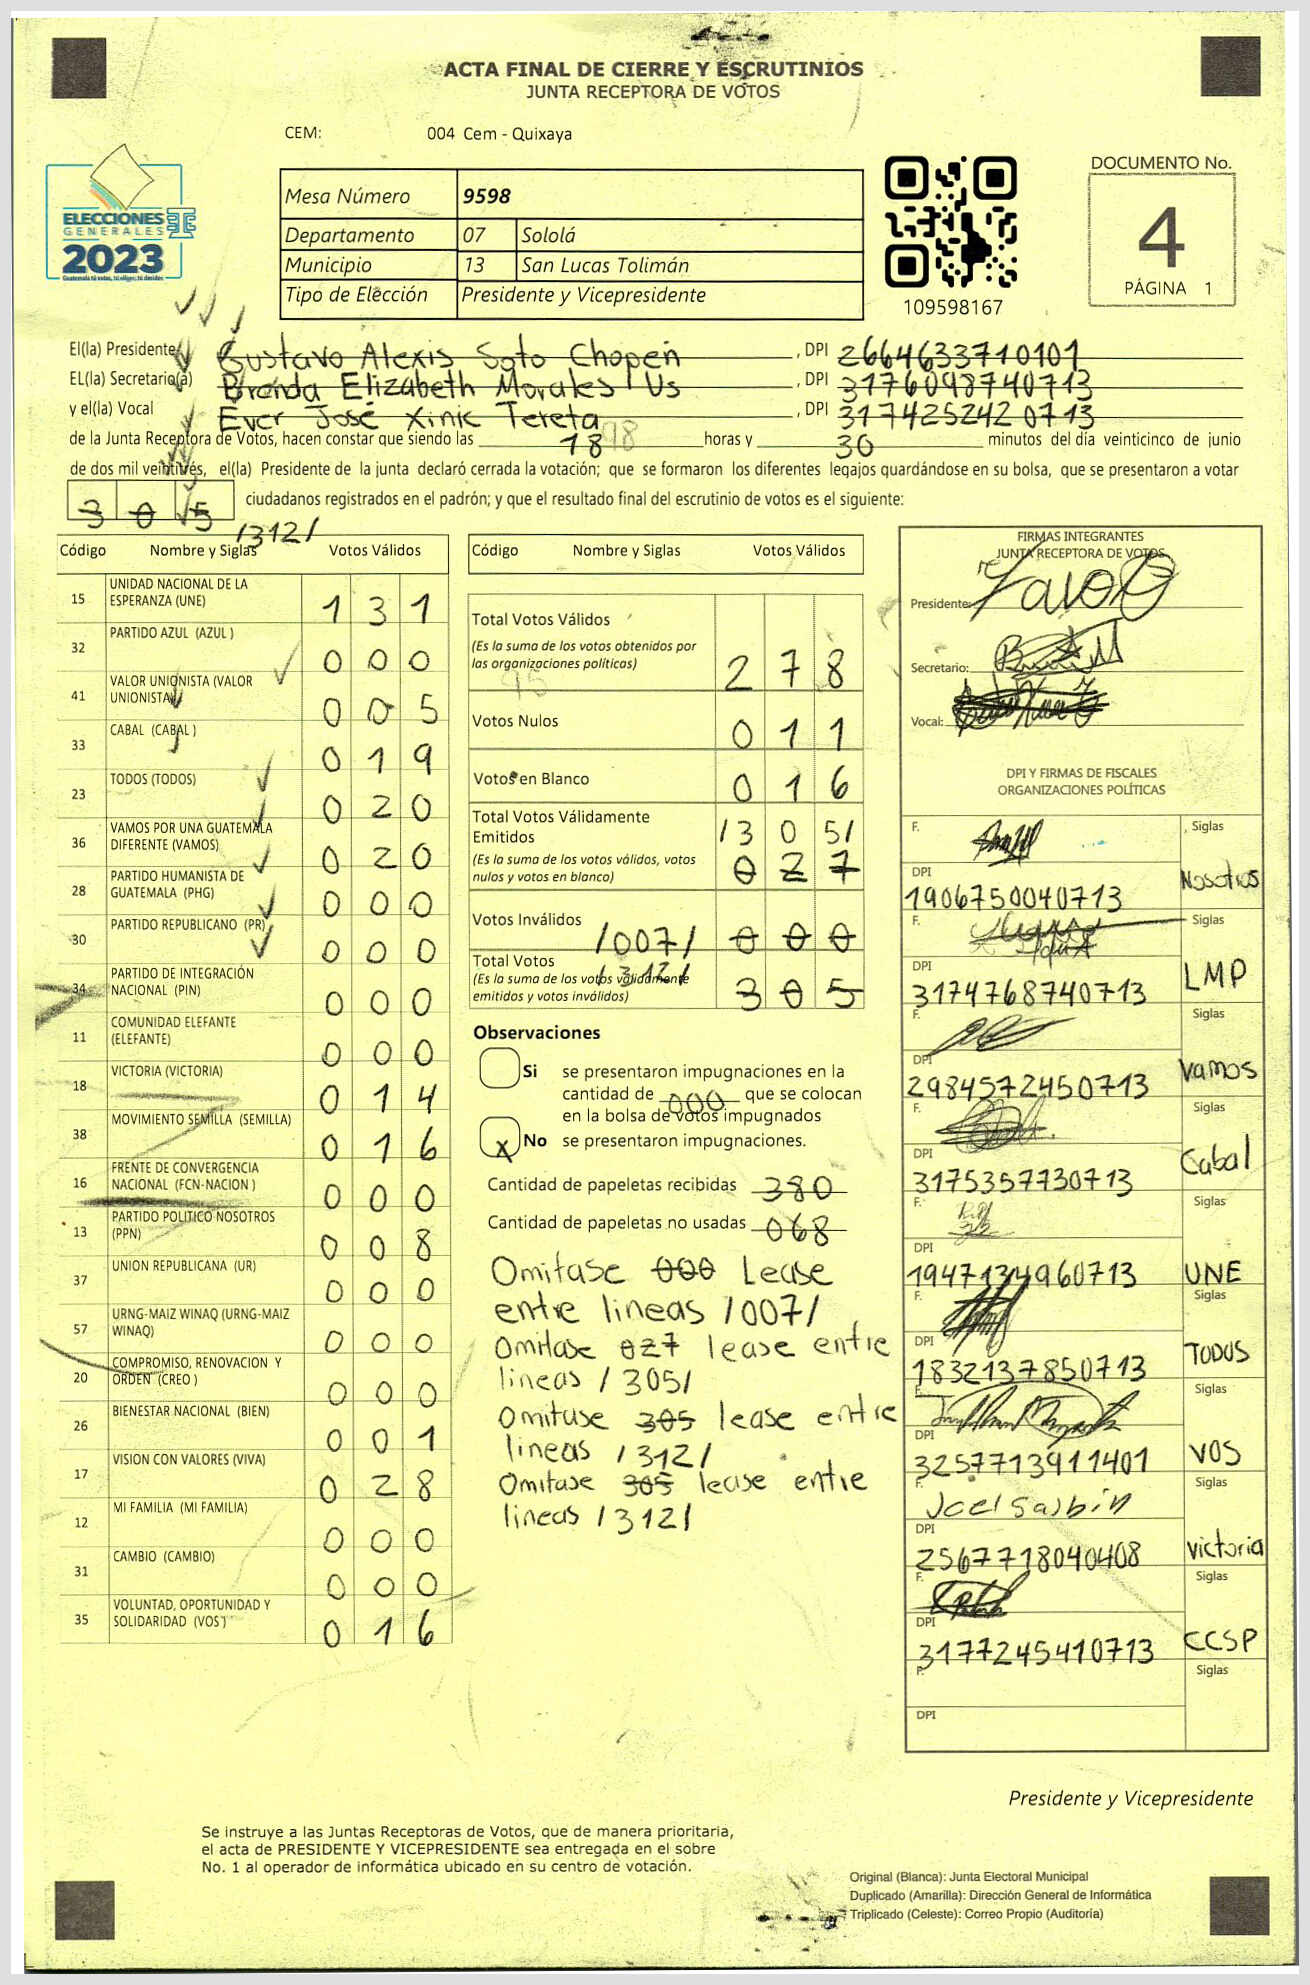 ACTA FINAL DE CIERRE Y ESCRUTINIOS
JUNTA RECEPTORA DE VOTOS
CEM: 004 Cem - Quixaya
ELECCIONES
GENERALES
2023
Guatemala tú votas, tú eliges, tú decides
Mesa Número 9598
Departamento 07 Sololá
Municipio 13 San Lucas Tolimán
Tipo de Elección Presidente y Vicepresidente
109598167
DOCUMENTO No.
4
PÁGINA 1
El(la) Presidente Gustavo Alexis Soto Chopen , DPI 2664633710101
EL(la) Secretario(a) Brenda Elizabeth Morales Us , DPI 3176098740713
y el(la) Vocal Ever José Xinic Tereta , DPI 3174252420713
de la Junta Receptora de Votos, hacen constar que siendo las 18 horas y 30 minutos del día veinticinco de junio
de dos mil veintitrés, el(la) Presidente de la junta declaró cerrada la votación; que se formaron los diferentes legajos quardándose en su bolsa, que se presentaron a votar
305 ciudadanos registrados en el padrón; y que el resultado final del escrutinio de votos es el siguiente:
/312/
Código Nombre y Siglas Votos Válidos
15 UNIDAD NACIONAL DE LA ESPERANZA (UNE) 1 3 1
32 PARTIDO AZUL (AZUL ) 0 0 0
41 VALOR UNIONISTA (VALOR UNIONISTA) 0 0 5
33 CABAL (CABAL ) 0 1 9
23 TODOS (TODOS) 0 2 0
36 VAMOS POR UNA GUATEMALA DIFERENTE (VAMOS) 0 2 0
28 PARTIDO HUMANISTA DE GUATEMALA (PHG) 0 0 0
30 PARTIDO REPUBLICANO (PR) 0 0 0
34 PARTIDO DE INTEGRACIÓN NACIONAL (PIN) 0 0 0
11 COMUNIDAD ELEFANTE (ELEFANTE) 0 0 0
18 VICTORIA (VICTORIA) 0 1 4
38 MOVIMIENTO SEMILLA (SEMILLA) 0 1 6
16 FRENTE DE CONVERGENCIA NACIONAL (FCN-NACION ) 0 0 0
13 PARTIDO POLITICO NOSOTROS (PPN) 0 0 8
37 UNION REPUBLICANA (UR) 0 0 0
57 URNG-MAIZ WINAQ (URNG-MAIZ WINAQ) 0 0 0
20 COMPROMISO, RENOVACION Y ORDEN (CREO ) 0 0 0
26 BIENESTAR NACIONAL (BIEN) 0 0 1
17 VISION CON VALORES (VIVA) 0 2 8
12 MI FAMILIA (MI FAMILIA) 0 0 0
31 CAMBIO (CAMBIO) 0 0 0
35 VOLUNTAD, OPORTUNIDAD Y SOLIDARIDAD (VOS ) 0 1 6
Código Nombre y Siglas Votos Válidos
Total Votos Válidos
(Es la suma de los votos obtenidos por
las organizaciones políticas) 2 7 8
Votos Nulos 0 1 1
Votos en Blanco 0 1 6
Total Votos Válidamente
Emitidos /3 0 5/
(Es la suma de los votos válidos, votos
nulos y votos en blanco) 0 2 7
Votos Inválidos /007/ 0 0 0
Total Votos /312/
(Es la suma de los votos válidamente
emitidos y votos inválidos) 3 0 5
Observaciones
Si se presentaron impugnaciones en la
cantidad de 000 que se colocan
en la bolsa de votos impugnados
X No se presentaron impugnaciones.
Cantidad de papeletas recibidas 380
Cantidad de papeletas no usadas 068
Omitase 000 Lease
entre lineas /007/
Omitase 027 lease entre
lineas /305/
Omitase 305 lease entre
lineas /312/
Omitase 305 lease entre
lineas /312/
FIRMAS INTEGRANTES
JUNTA RECEPTORA DE VOTOS
Presidente:
Secretario:
Vocal:
DPI Y FIRMAS DE FISCALES
ORGANIZACIONES POLÍTICAS
F. Siglas
DPI 1906750040713 Nosotros
F. Siglas
DPI 3174768740713 LMP
F. Siglas
DPI 2984572450713 Vamos
F. Siglas
DPI 3175357730713 Cabal
F. Siglas
DPI 1947134960713 UNE
F. Siglas
DPI 1832137850713 TODOS
F. Siglas
DPI 3257713911401 VOS
F. Siglas
DPI 2567718040408 Victoria
F. Siglas
DPI 3177245410713 CCSP
F. Siglas
DPI
Presidente y Vicepresidente
Se instruye a las Juntas Receptoras de Votos, que de manera prioritaria,
el acta de PRESIDENTE Y VICEPRESIDENTE sea entregada en el sobre
No. 1 al operador de informática ubicado en su centro de votación.
Original (Blanca): Junta Electoral Municipal
Duplicado (Amarilla): Dirección General de Informática
Triplicado (Celeste): Correo Propio (Auditoría)